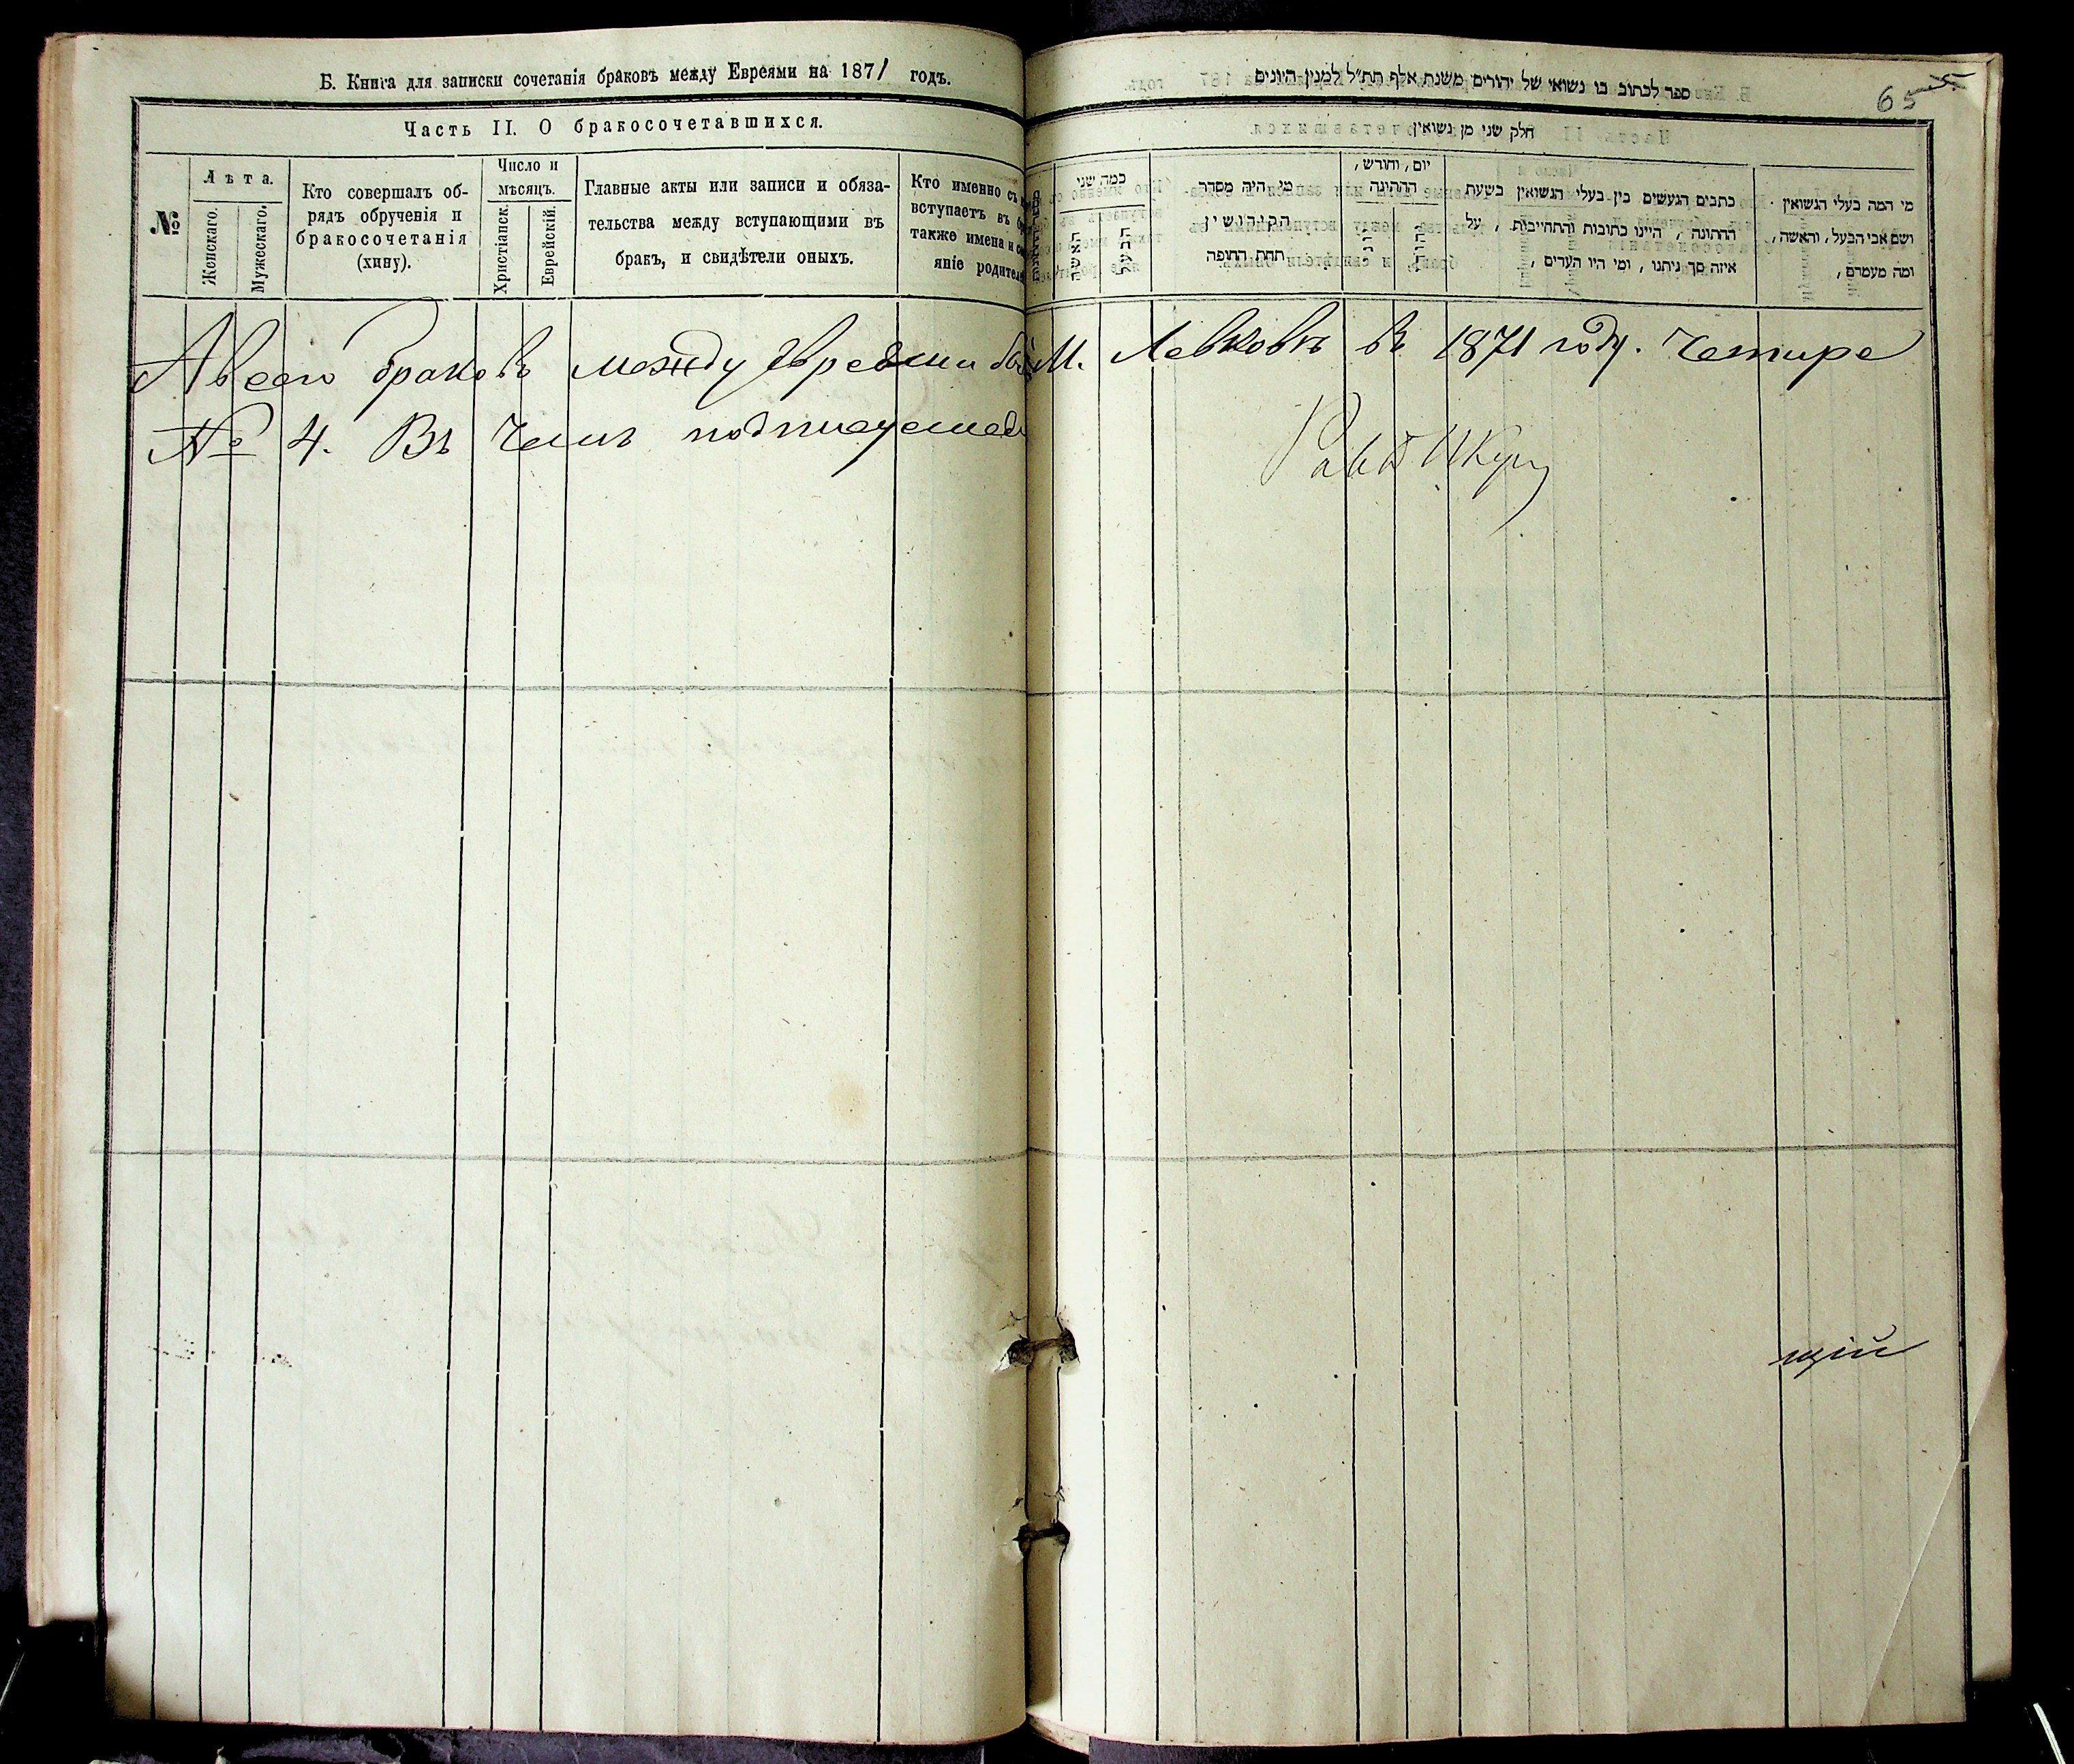 Б. Книга для записки сочетанія браковъ между Евреями на 1871 годъ.
Часть II. О бракосочетавшихся.
№
Лѣта.
Женскаго.
Мужескаго.
Кто совершалъ об-
рядъ обрученія и
бракосочетанія
(хипу).
Число и
мѣсяцъ.
Христіанск.
Еврейскій.
Главные акты или записи и обяза-
тельства между вступающими въ
бракъ, и свидѣтели оныхъ.
Кто именно съ
вступаетъ въ
также имена и
яніе родител
А всего браковъ между Евреями
№ 4. Въ чемъ подписуемся
ספר לכתוב בו נשואי של יהודים משנת אלף תת״ל למנין היונים
65
חלק שני מן נשואין
כמה שני
האשה
הבעל
מי היה מסדר
הקידושין
תחת החופה
יום, וחודש,
החתונה
כתבים הנעשים בין בעלי הנשואין בשעת
החתונה, היינו כתובות והתחייבות, על
איזה סך ניתנו, ומי היו העדים,
מי המה בעלי הנשואין
ושם אבי הבעל, והאשה,
ומה מעמדם,
М. Левковъ въ 1871 году. Четире
щій